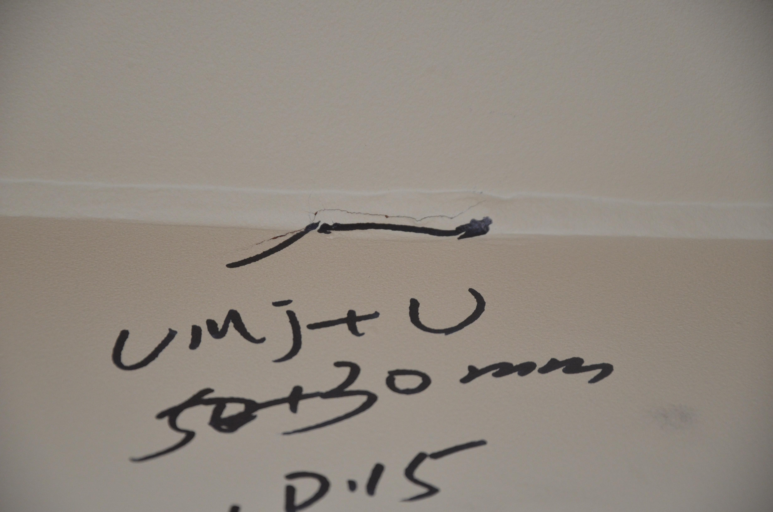 UMj+U
50+30 mm
D.15